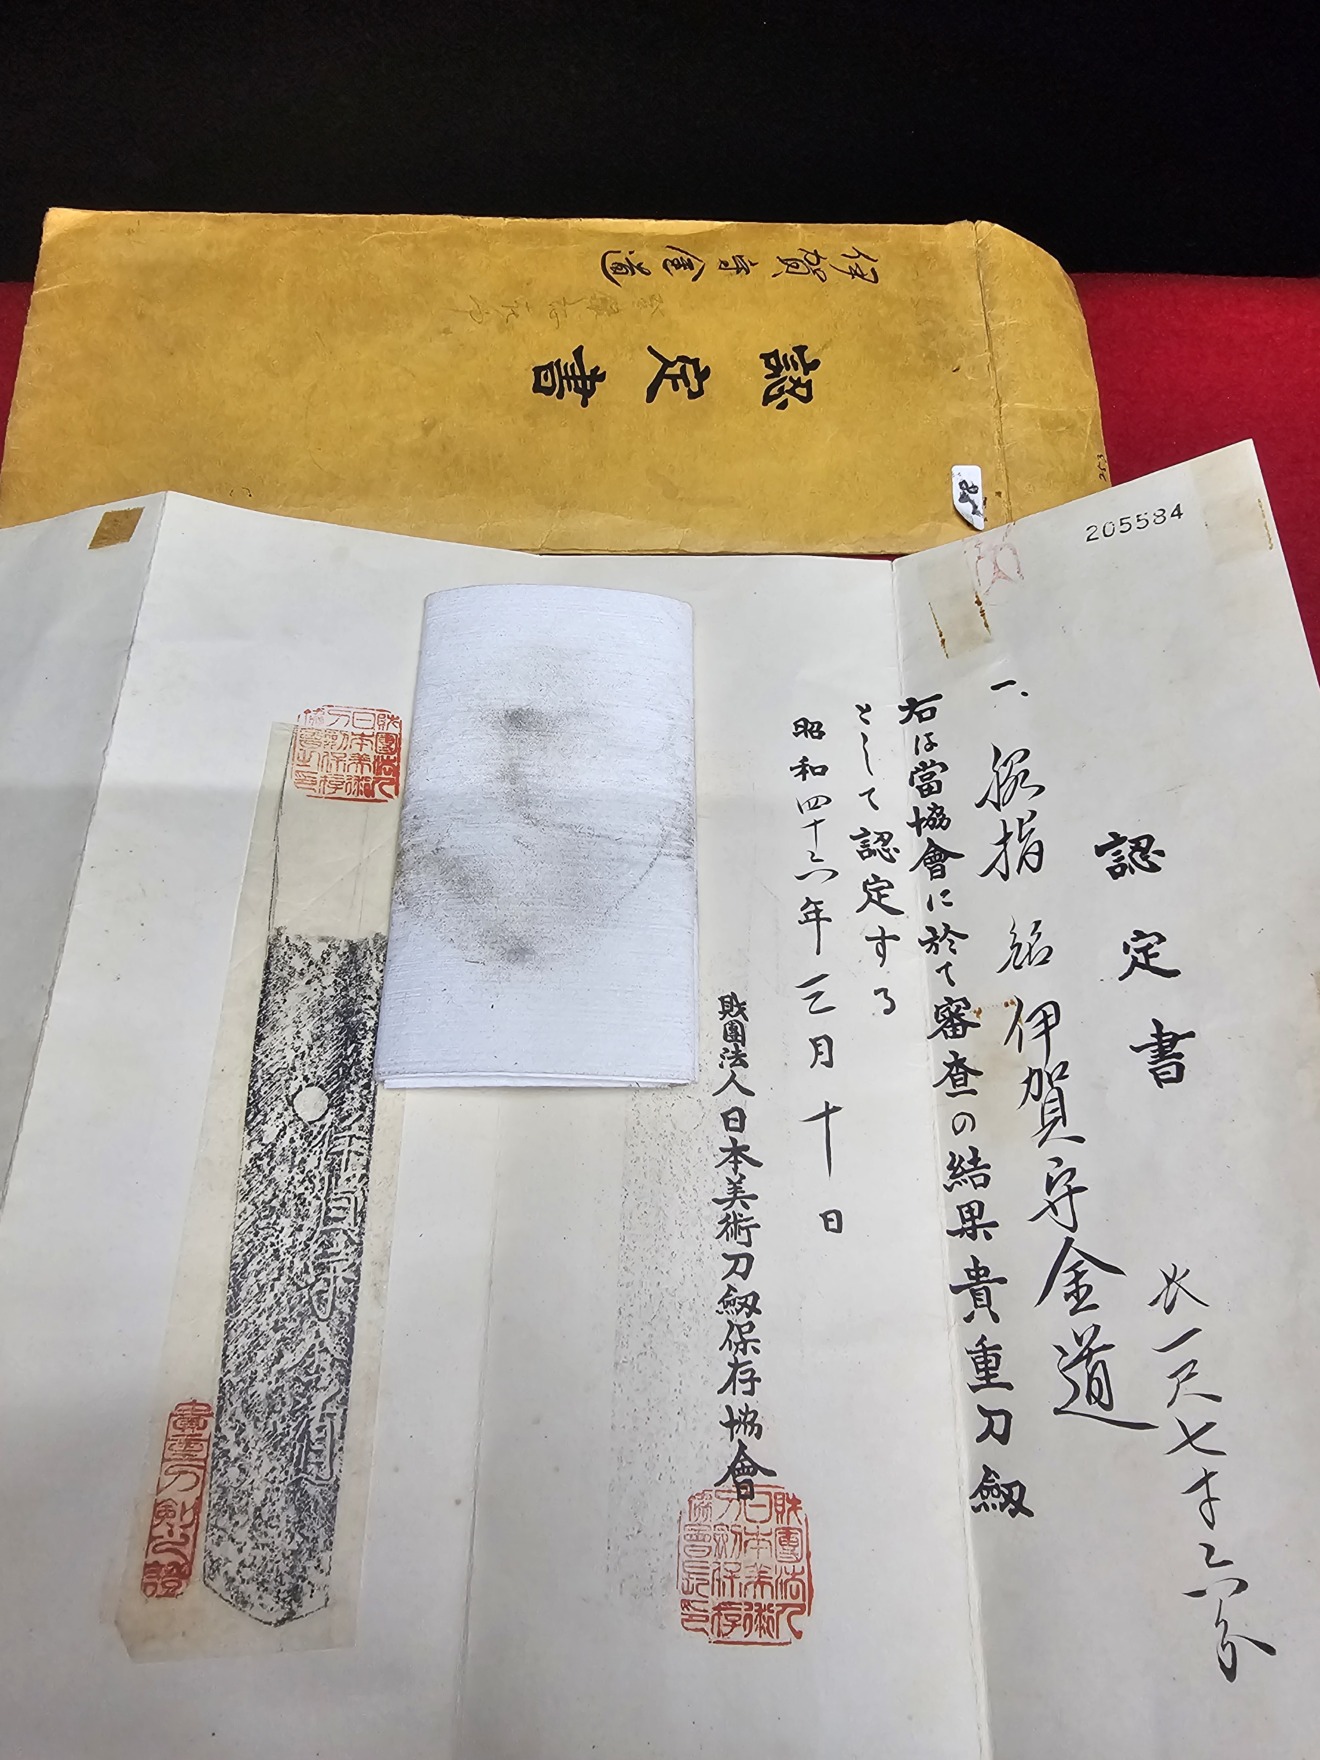 伊賀守金道
認定書
205584
認定書
一、脇指 銘 伊賀守金道
長一尺七寸六分
右は當協會に於て審査の結果貴重刀劔
として認定する
昭和四十六年三月十日
財團法人日本美術刀劔保存協會
財團法人日本美術刀劍保存協會長印
財團法人日本美術刀劍保存協會之印
伊賀守金道
貴重刀剣之證